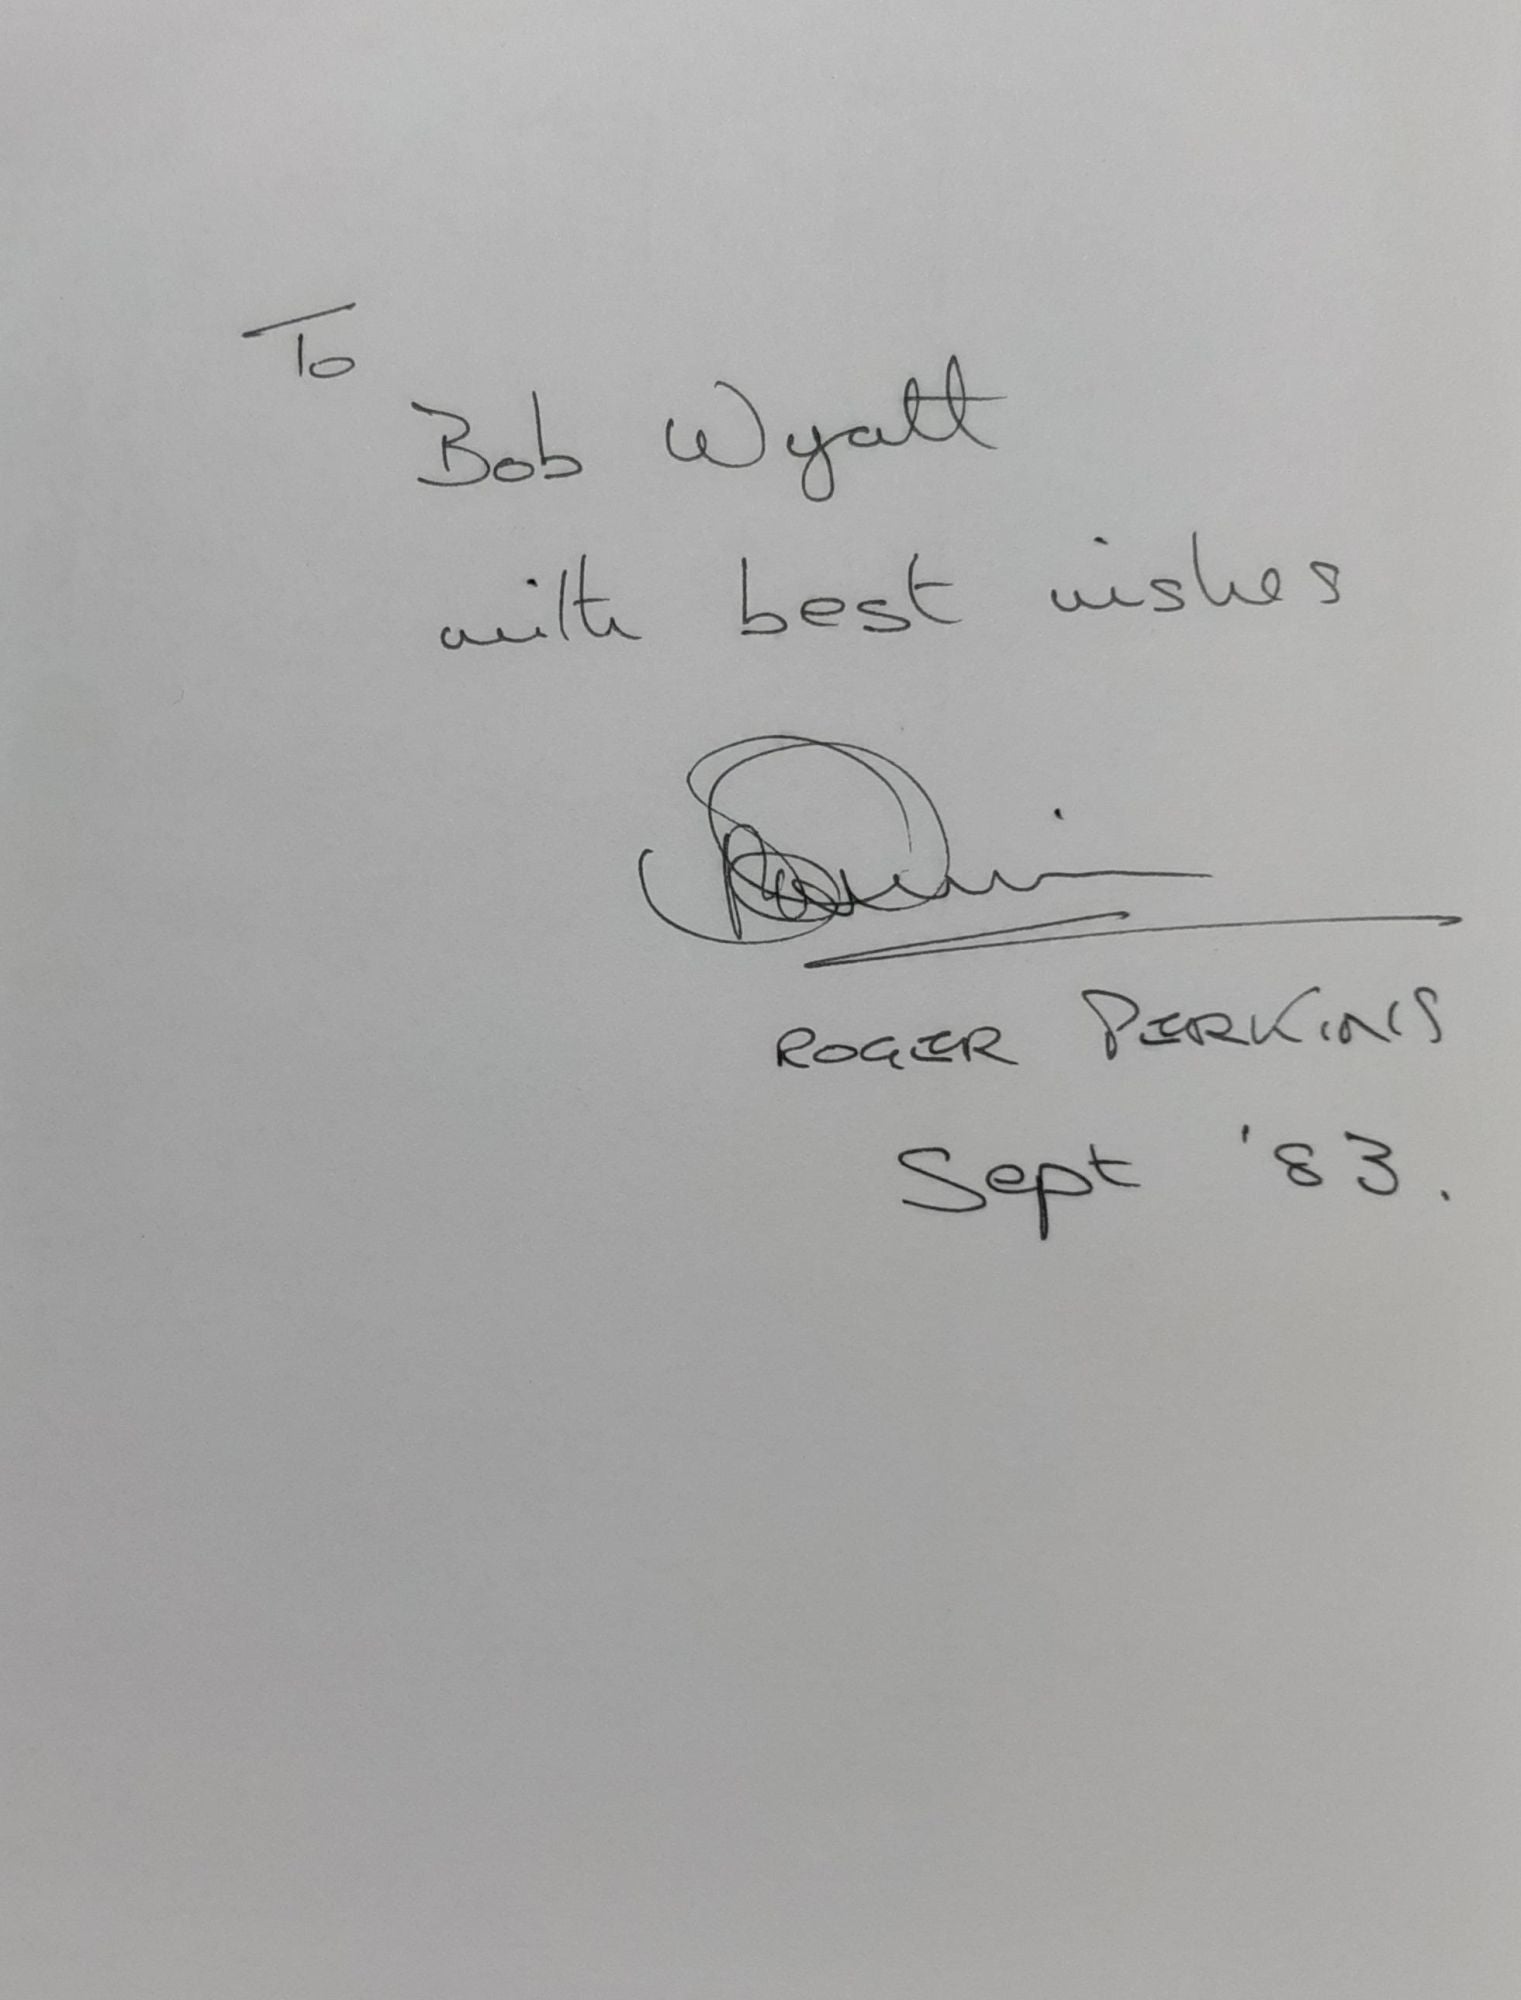 To
Bob Wyatt
with best wishes
ROGER PERKINS
Sept '83.